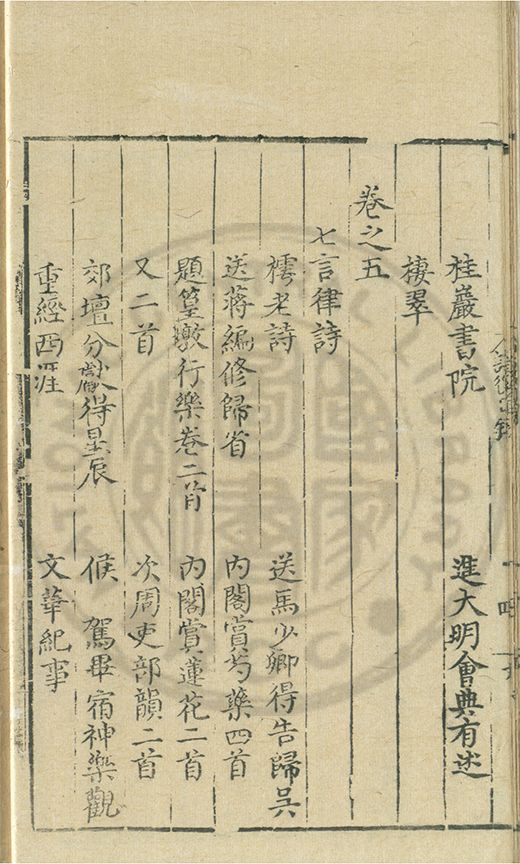 桂巖書院　進大明會典有述
棲翠
卷之五
七言律詩
樗老詩　送馬少卿得告歸吳
送蔣編修歸省　內閣賞芍藥四首
題篁墩行樂卷二首　內閣賞蓮花二首
又二首　次周吏部韻二首
郊壇分獻得星辰　候　駕畢宿神樂觀
重經西涯　文華紀事